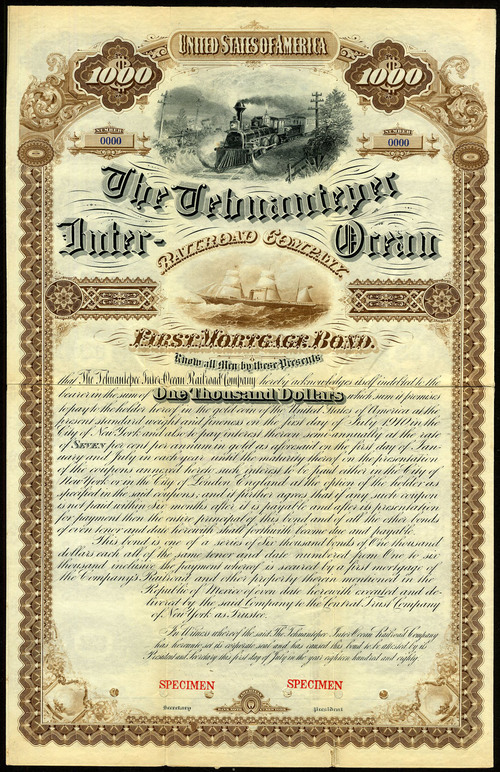 UNITED STATES OF AMERICA
$1000 $1000
NUMBER NUMBER
0000 0000
The Tehuantepec
Inter- Ocean
RAILROAD COMPANY
FIRST MORTGAGE BOND.
Know all Men by these Presents
that The Tehuantepec Inter-Ocean Railroad Company hereby acknowledges itself indebted to the
bearer in the sum of One Thousand Dollars which sum it promises
to pay to the holder hereof in the gold coin of the United States of America at the
present standard weight and fineness on the first day of July 1910 in the
City of New York and also to pay interest thereon semi-annually at the rate
of SEVEN per cent per annum in gold as aforesaid on the first day of Jan-
uary and July in each year until the maturity thereof on the presentation
of the coupons annexed hereto, such interest to be paid either in the City of
New York or in the City of London England at the option of the holder as
specified in the said coupons, and it further agrees that if any such coupon
is not paid within six months after it is payable and after its presentation
for payment then the entire principal of this bond and of all the other bonds
of even tenor and date herewith shall forthwith become due and payable.
This bond is one of a series of Six thousand bonds of One thousand
dollars each all of the same tenor and date numbered from One to six
thousand inclusive the payment whereof is secured by a first mortgage of
the Company's Railroad and other property therein mentioned in the
Republic of Mexico of even date herewith executed and de-
livered by the said Company to the Central Trust Company
of New York as Trustee.
In Witness whereof the said The Tehuantepec Inter-Ocean Railroad Company
has hereunto set its corporate seal and has caused this bond to be attested by its
President and Secretary this first day of July in the year eighteen hundred and eighty.
SPECIMEN SPECIMEN
Secretary President